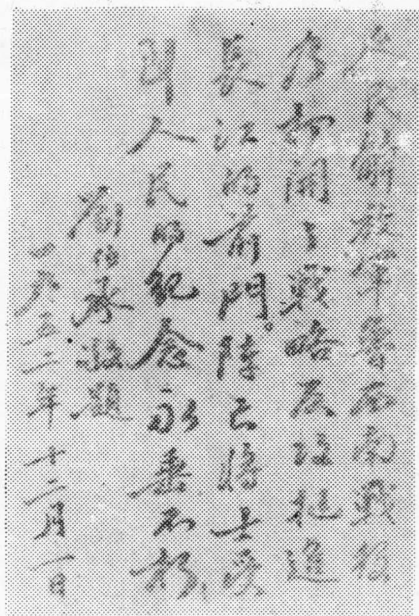 人民解放軍魯西南戰役
乃打開了戰略反攻挺進
長江的前門。陣亡將士受
到人民的紀念永垂不朽
劉伯承敬題
一九五二年十二月一日